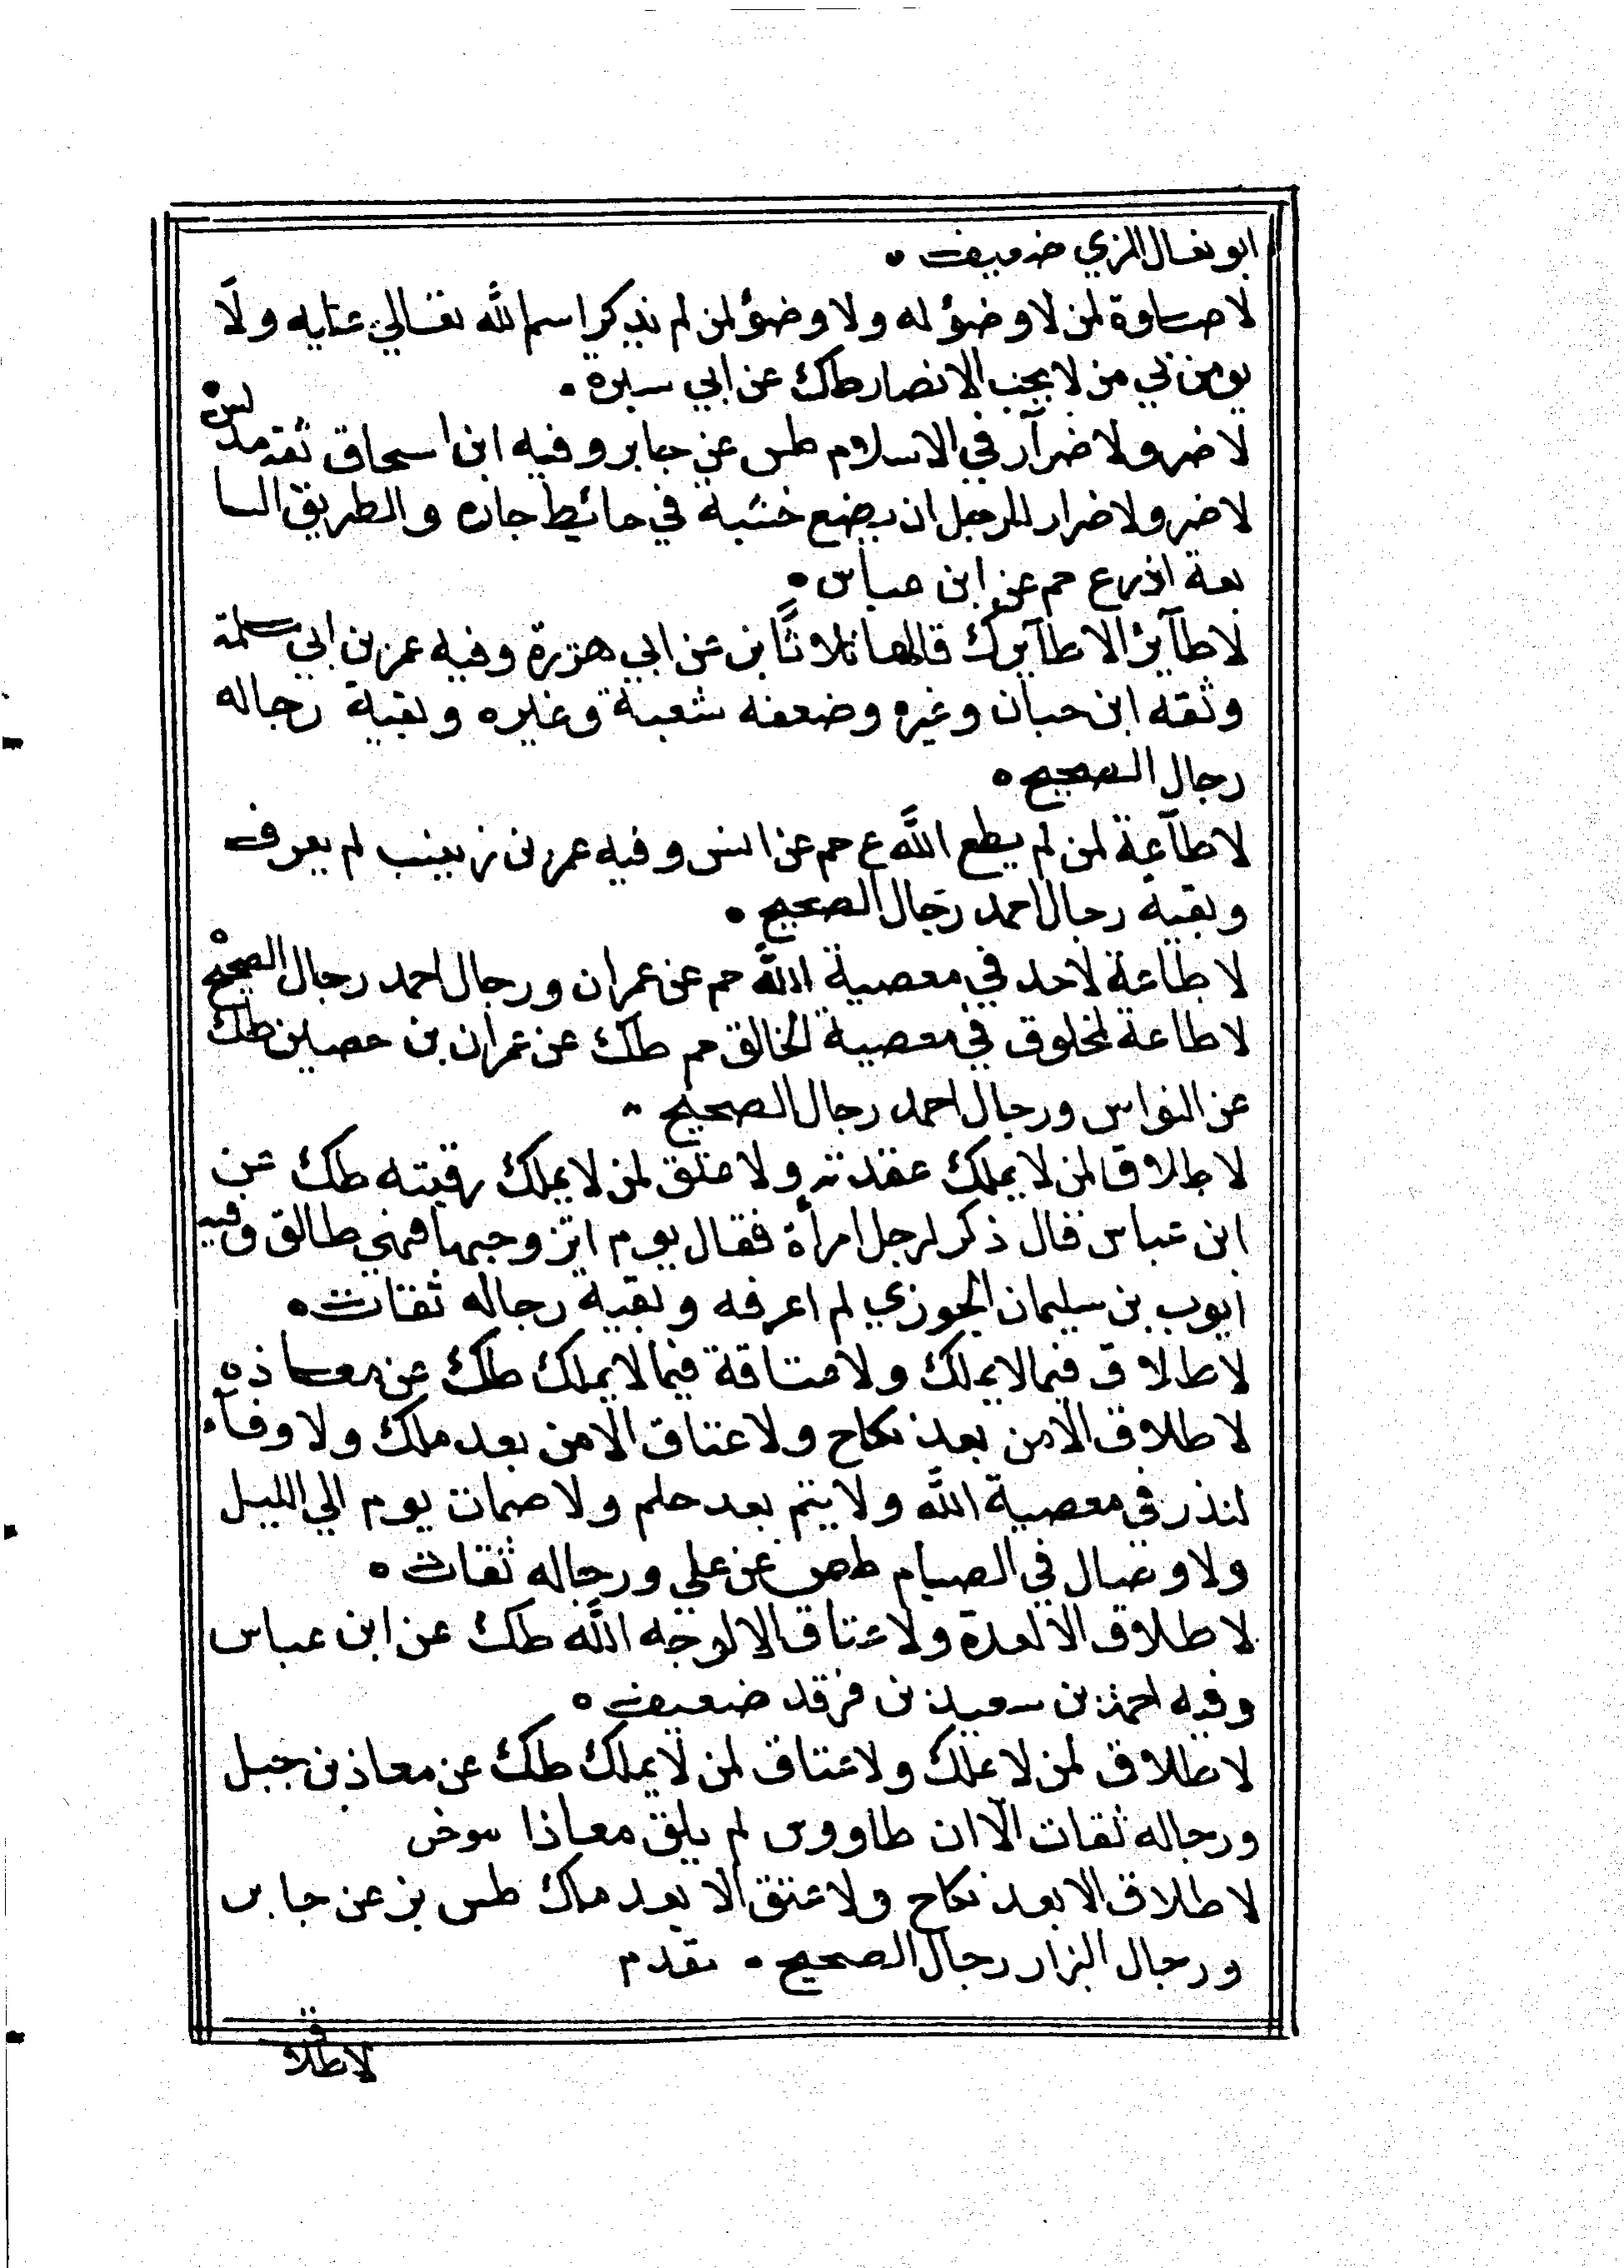 ابو نعال المزي ضعيف ٥
لا صلوة لمن لا وضؤ له ولا وضؤ لمن لم يذكر اسم الله تعالي عليه ولا
يومن بي من لا يحب الانصار طك عن ابي سبرة ٠
لا ضر ولا ضرآر في الاسلام طس عن جابر وفيه ابن اسحاق ثقة مدلس
لا ضر ولا ضرار للرجل ان يضع خشبة في حائط جاره والطريق السا
بعة اذرع حم عن ابن عباس ٥
لا طآير الا طآيرك قالها ثلاثا بز عن ابي هريرة وفيه عمر بن ابي سلمة
وثقه ابن حبان وغيره وضعفه شعبة وغيره وبقية رجاله
رجال الصحيح ٥
لا طآعة لمن لم يطع الله ع حم عن انس وفيه عمر بن زينب لم يعرف
وبقية رجال احمد رجال الصحيح ٠
لا طاعة لاحد في معصية الله حم عن عمران ورجال احمد رجال الصحيح ٥
لا طاعة لمخلوق في معصية الخالق حم طك عن عمران بن حصين طك
عن النواس ورجال احمد رجال الصحيح ٠
لا طلاق لمن لا يملك عقدته ولا عتق لمن لا يملك رقبته طك عن
ابن عباس قال ذكر لرجل امرأة فقال يوم اتزوجها فهي طالق وفيه
ايوب بن سليمان الجوزي لم اعرفه وبقية رجاله ثقات ٥
لا طلاق فيما لا يملك ولا عتاقة فيما لا يملك طك عن معاذ ٥
لا طلاق الا من بعد نكاح ولا عتاق الا من بعد ملك ولا وفآء
لنذر في معصية الله ولا يتم بعد حلم ولا صمات يوم الي الليل
ولا وصال في الصيام طص عن علي ورجاله ثقات ٥
لا طلاق الا لعدة ولا عتاق الا لوجه الله طك عن ابن عباس
وفيه احمد بن سعيد بن فرقد ضعيف ٥
لا طلاق لمن لا يملك ولا عتاق لمن لا يملك طك عن معاذ بن جبل
ورجاله ثقات الا ان طاووس لم يلق معاذا
لا طلاق الا بعد نكاح ولا عتق الا بعد ملك طس بز عن جابر
ورجال البزار رجال الصحيح ٠ تقدم
لا طلاق